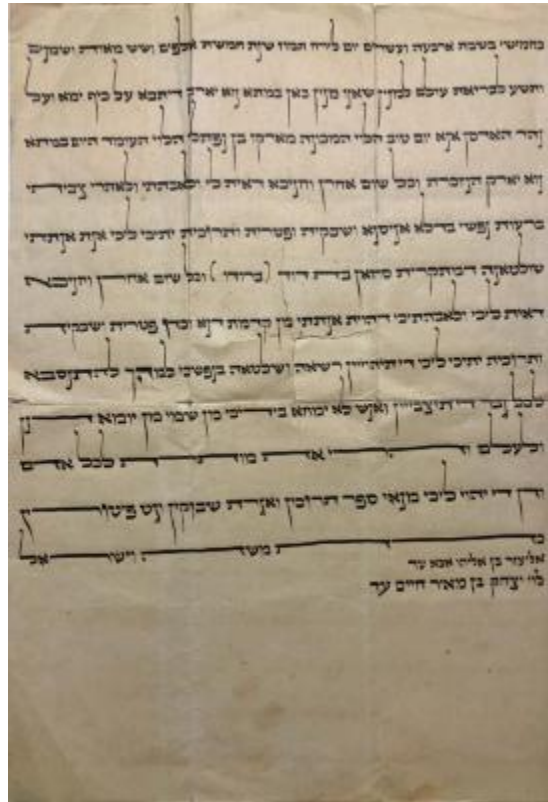 בחמישי בשבת ארבעה ועשרים יום לירח תמוז שנת חמשת אלפים ושש מאות ושמנים
ותשע לבריאת עולם למנין שאנו מנין כאן במתא נוא יארק דיתבא על כיף ימא ועל
נהר האדסן אנא יום טוב הלוי המכונה מארקו בן נפתלי הלוי העומד היום במתא
נוא יארק הנזכרת וכל שום אחרן וחניכא דאית לי ולאבהתי ולאתרי צביתי
ברעות נפשי בדלא אניסנא ושבקית ופטרית ותרוכית יתיכי ליכי אנת אנתתי
שולטאנה דמתקרית סוזאן בת דוד (ברודו) וכל שום אחרן וחניכא
דאית ליכי ולאבהתיכי דהוית אנתתי מן קדמת דנא וכדו פטרית ושבקית
ותרוכית יתיכי ליכי דיתיהוייין רשאה ושלטאה בנפשיכי למהך להתנסבא
לכל גבר די תיצבייין ואנש לא ימחא בידיכי מן שמי מן יומא דנן
ולעלם והרי את מותרת לכל אדם
ודן די יהוי ליכי מנאי ספר תרוכין ואגרת שבוקין וגט פיטורין
כדת משה וישראל
אליעזר בן אליהו אבא עד
לוי יצחק בן מאיר חיים עד